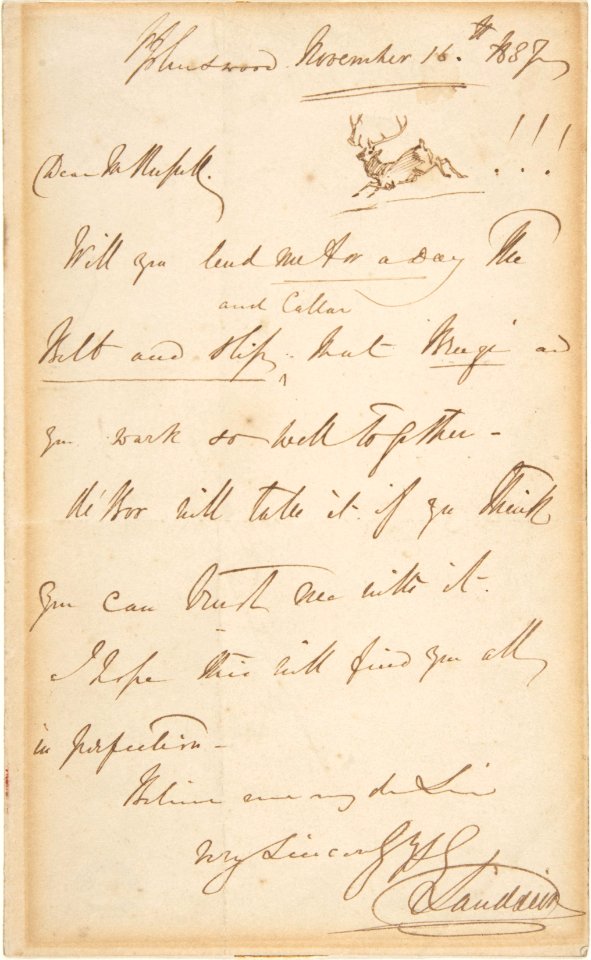 November 16.th 1837
!!!
Dear Mr Russell.
Will you lend me for a Day The
and Collar
Belt and slip, that and
you work so well together -
will take it if you Think
you can trust me with it.
I hope this will find you all
in perfection -
Believe me my dr Sir
very Sincerely yrs
E Landseer